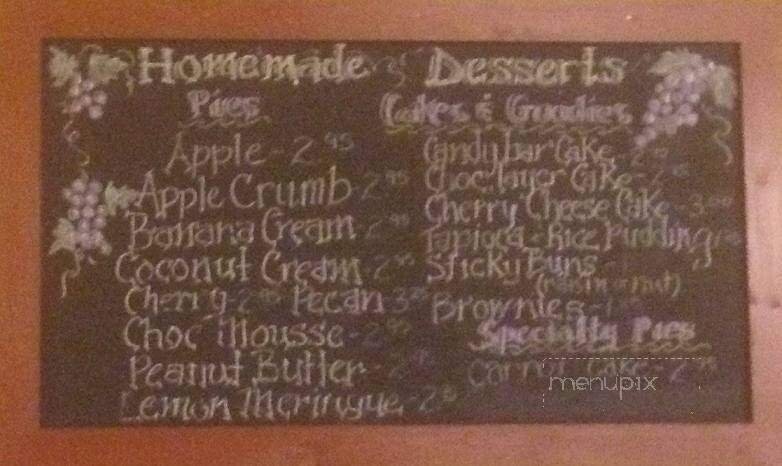 Homemade Desserts
Pies
Apple - 2 95
Apple Crumb - 2 95
Banana Cream - 2 95
Coconut Cream - 2 95
Cherry - 2 Pecan 3
Choc Mousse - 2 95
Peanut Butter - 2
Lemon Meringue - 2
Cakes & Goodies
Candy bar Cake
Choc. layer Cake - 2
Cherry Cheese Cake - 3
Tapioca - Rice Pudding
Sticky Buns -
(raisin or nut)
Brownies -
Specialty Pies
Carrot Cake - 2 95
menupix